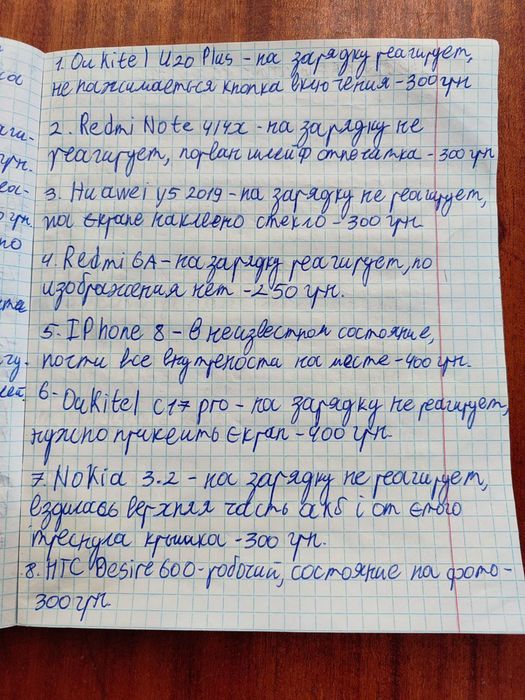 ка
1. OuKitel U20 Plus - на зарядку реагирует,
не нажимається кнопка включения - 300 грн
аги-
2. Redmi Note 4/4x - на зарядку не
грн.
реагирует, порван шлейф отпечатка - 300 грн
3. Huawei y5 2019 - на зарядку не реагирует,
грн.
на єкране наклеено стекло - 300 грн
но
4. Redmi 6A - на зарядку реагирует, но
изображения нет - 250 грн.
5. IPhone 8 - в неизвестном состояние,
почти все внутрености на месте - 400 грн.
6- OuKitel c17 pro - на зарядку не реагирует,
нужно прикеить єкран - 400 грн.
7. Nokia 3.2 - на зарядку не реагирует,
вздилась верхняя часть акб і от єтого
треснула крышка - 300 грн.
8. HTC Desire 600 - робочий, состояние на фото -
300 грн.